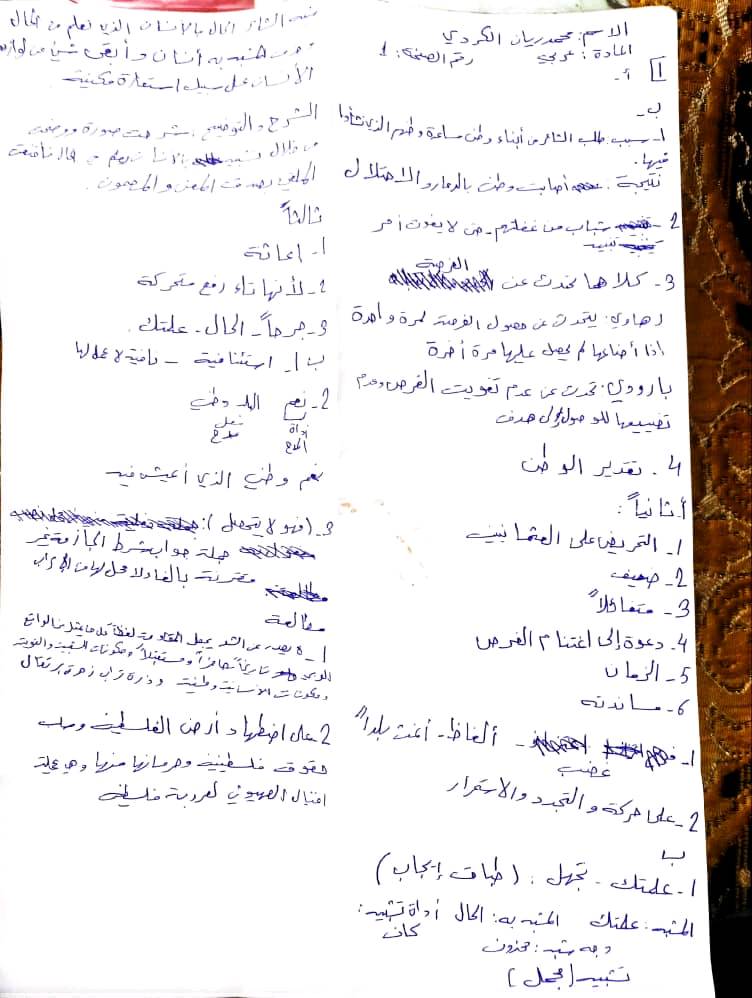 الاسم: محمد ريان الكردي
المادة: عربي رقم الصفحة: 1
1 أ-
ب-
1- سبب: طلب الشاعر من أبناء وطن مساعدة وطنهم الذي نشأوا
فيها.
نتيجة: أصابت وطن بالدمار والاحتلال
2- شباب من غفلتهم - حتى لا يفوت أمر
تنبيه
3- كلاهما تحدث عن الفرصة
رهاوي: يتحدث عن حصول الفرصة لمرة واحدة
اذا أضاعها لم يحصل عليها مرة أخرة
بارودي: تحدث عن عدم تفويت الفرص وعدم
تضييعها للوصول إلى هدف
4. تقدير الوطن
أثانياً:
1. التحريض على العثمانيين
2- ضعيف
3- متفائلاً
4. دعوة إلى اغتنام الفرص
5- الزمان
6- مساندته
1- غضب - ألفاظ - أغث بلداً
2- على حركة والتجدد والاستقرار
ب
1- علمتك - تجهل: (طباق إيجاب)
المشبه: علمتك المشبه به: الحال أداة تشبيه:
كان
وجه شبه: محزون
تشبيه (مجمل)
شبه الشاعر الحال بالانسان الذي تعلم من الحال
المشبه به أنسان وأبقى شيئاً من لوازم
الأنسان على سبيل استعارة مكنية
الشرح والتوضيح: شرحت صورة ووضحت
من خلال تشبيه
المعنى والمضمون.
ثالثاً
1- اعاثة
2- لأنها تاء رفع متحركة
3- جرحاً - الحال - علمتك.
ب 1. استئنافية - نافية لا عمل لها
2- نعم البلد وطني
أداة المدح فعل مدح
نعم وطني الذي أعيش فيه
3. (فهو لا يتحصل):
جملة جواب شرط الجازم غير
مقترنة بالفاء لا محل لها من الإعراب
مطالعة
1- لا يصدر عن الشعر
تاريخاً حاضراً ومستقبلاً ومكونات
ومكونات الأنسانية وطنية وذرة تراب زهرة برتقال
2- على اضطهاد أرض الفلسطينية وسلب
حقوق فلسطينية وحرمانها منها وهي عملية
اغتيال الصهيوني لعروبة فلسطينية